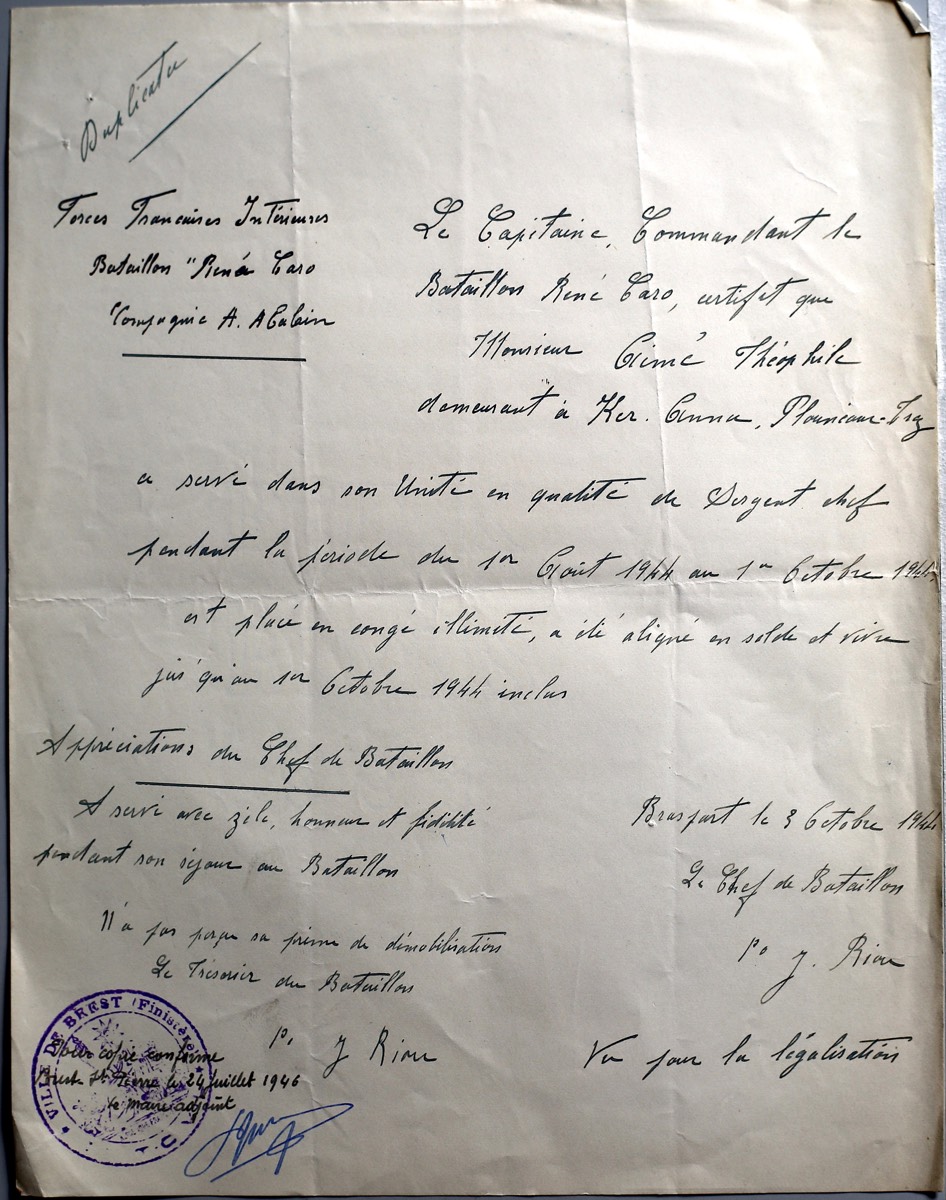 Duplicata
Forces Francaises Intérieures
Bataillon "René Caro
Compagnie A.
Le Capitaine, Commandant le
Bataillon René Caro, certifit que
Monsieur Aimé Théophile
demeurant à Ker. Anna, Plounéour-Trez
a servi dans son Unité en qualité de Sergent chef
pendant la période du 1er Août 1944 au 1er Octobre 1944
est placé en congé illimité, a été aligné en solde et vivre
jus'qu'au 1er Octobre 1944 inclus
Appréciations du Chef de Bataillon
A servi avec zèle, honneur et fidélité
pendant son séjour au Bataillon
Braspart le 3 Octobre 1944
Le Chef de Bataillon
Po J. Riou
N'a pas perçue sa prime de démobilisation
Le Trésorier du Bataillon
Po J Riou
Vu pour la légalisation
VILLE DE BREST (Finistère)
Pour copie conforme
Brest St Pierre le 24 juillet 1946
le maire adjoint